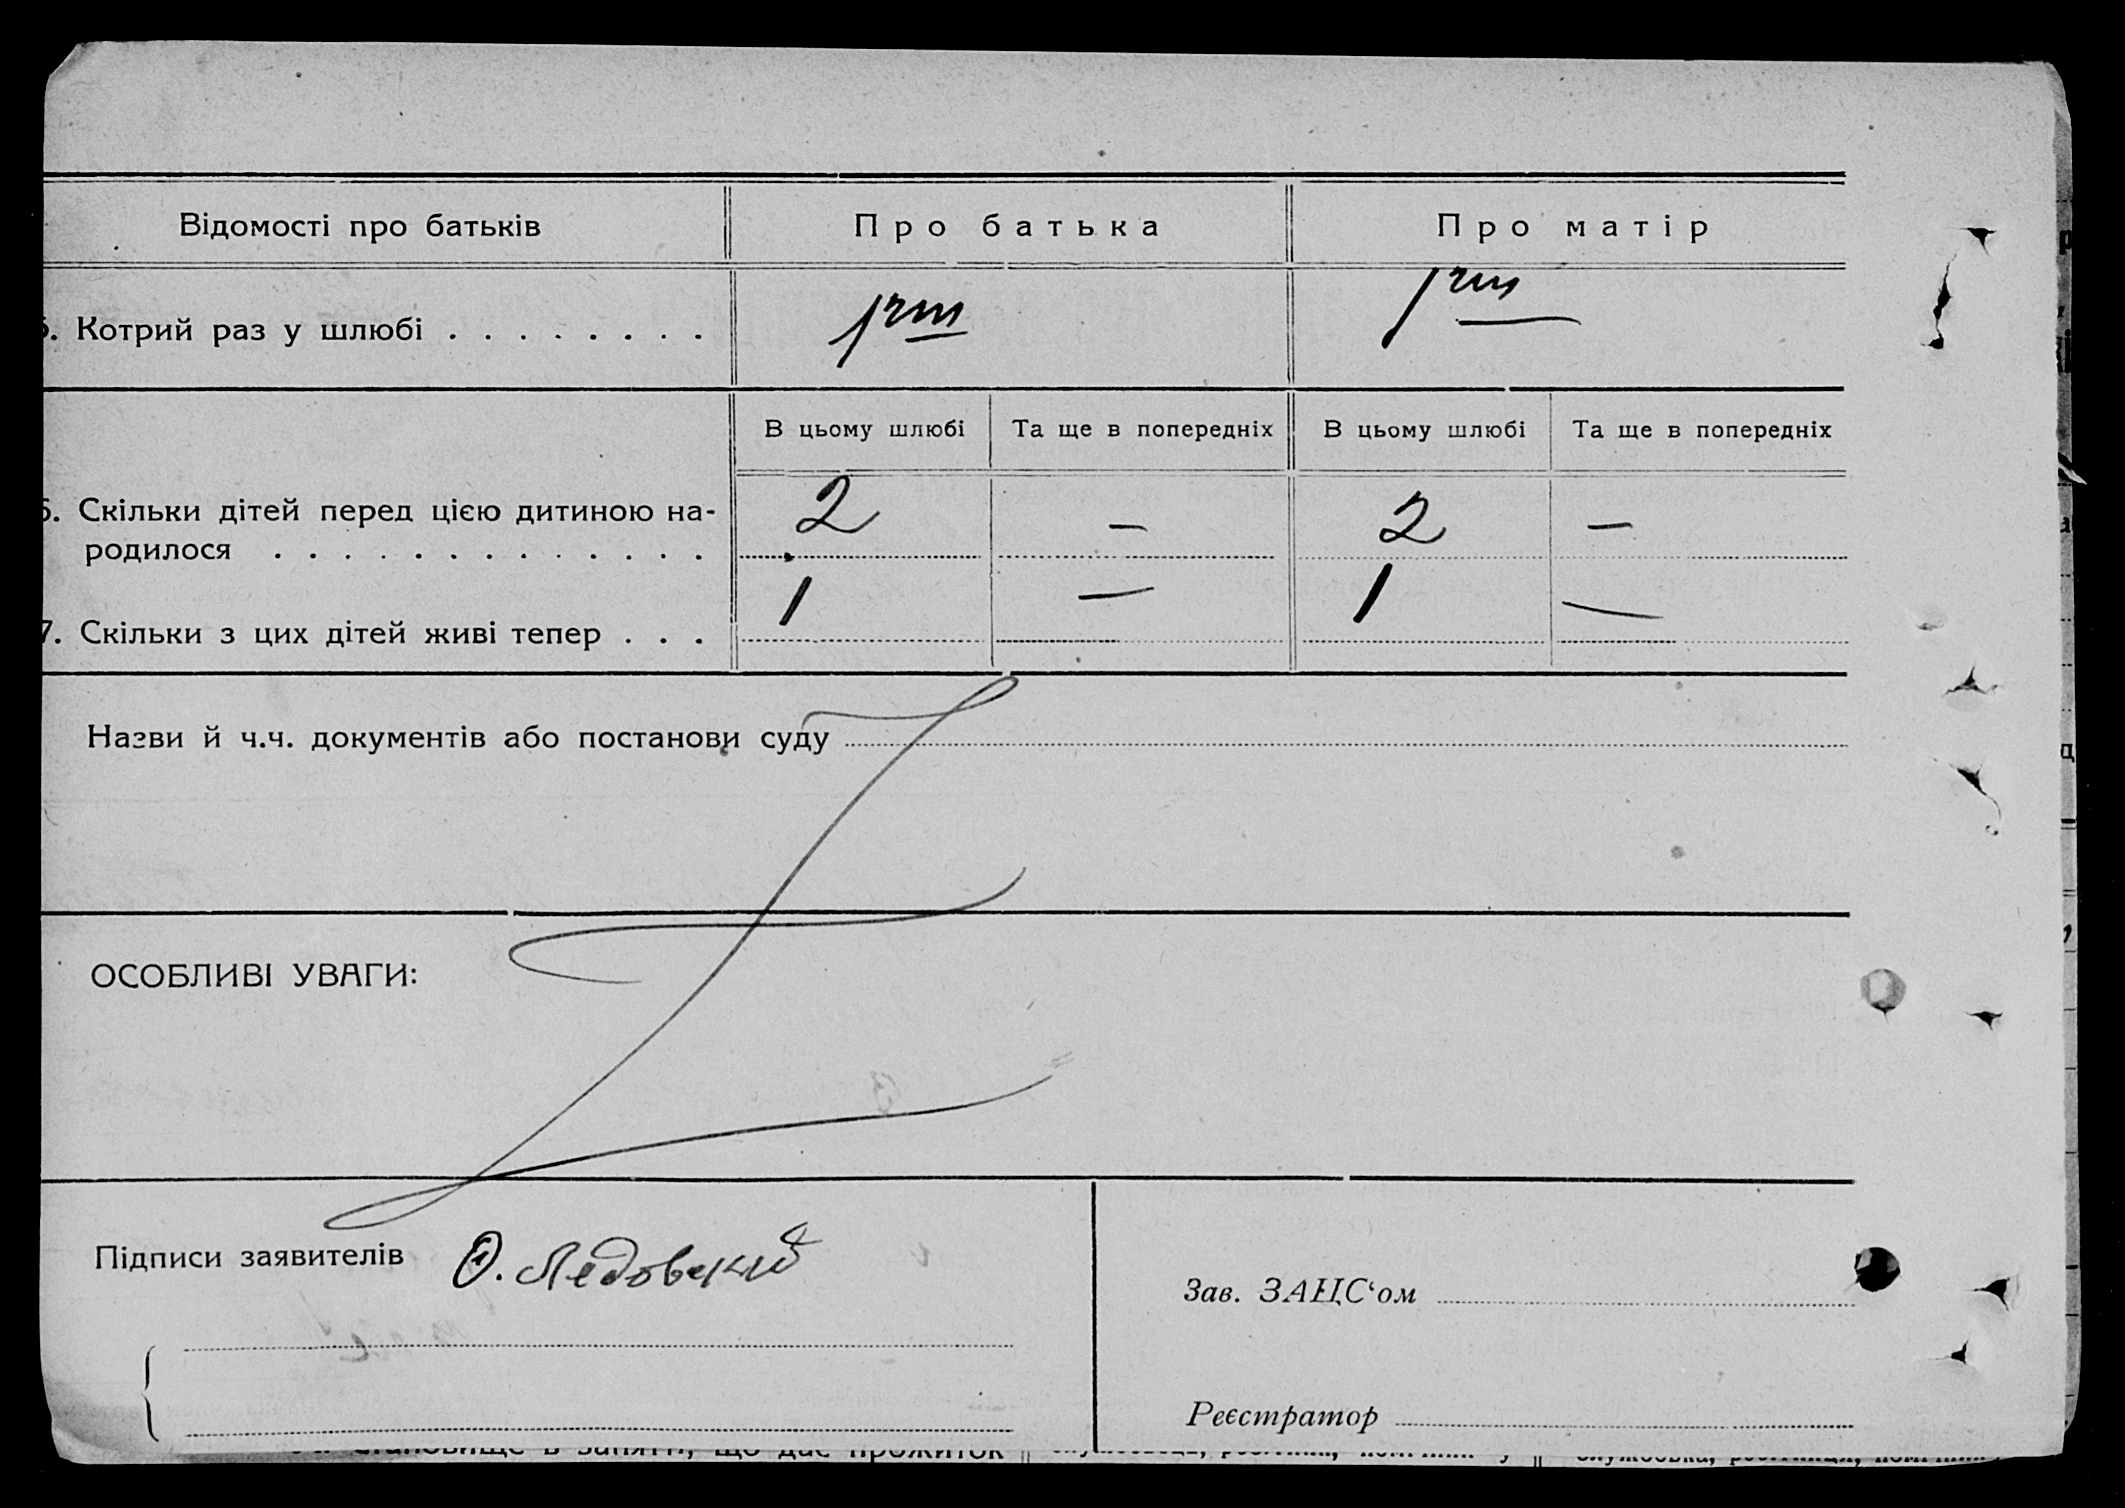 Відомості про батьків Про батька Про матір
5. Котрий раз у шлюбі . . . . . . . .
В цьому шлюбі Та ще в попередніх В цьому шлюбі Та ще в попередніх
6. Скільки дітей перед цією дитиною на-
родилося . . . . . . . . . . . . . 2 — 2 —
7. Скільки з цих дітей живі тепер . . . 1 — 1 —
Назви й ч.ч. документів або постанови суду
ОСОБЛИВІ УВАГИ:
Підписи заявителів Ф. Ледовский
Зав. ЗАЦС‘ом
Реєстратор
становище в занятті, що дає прожиток